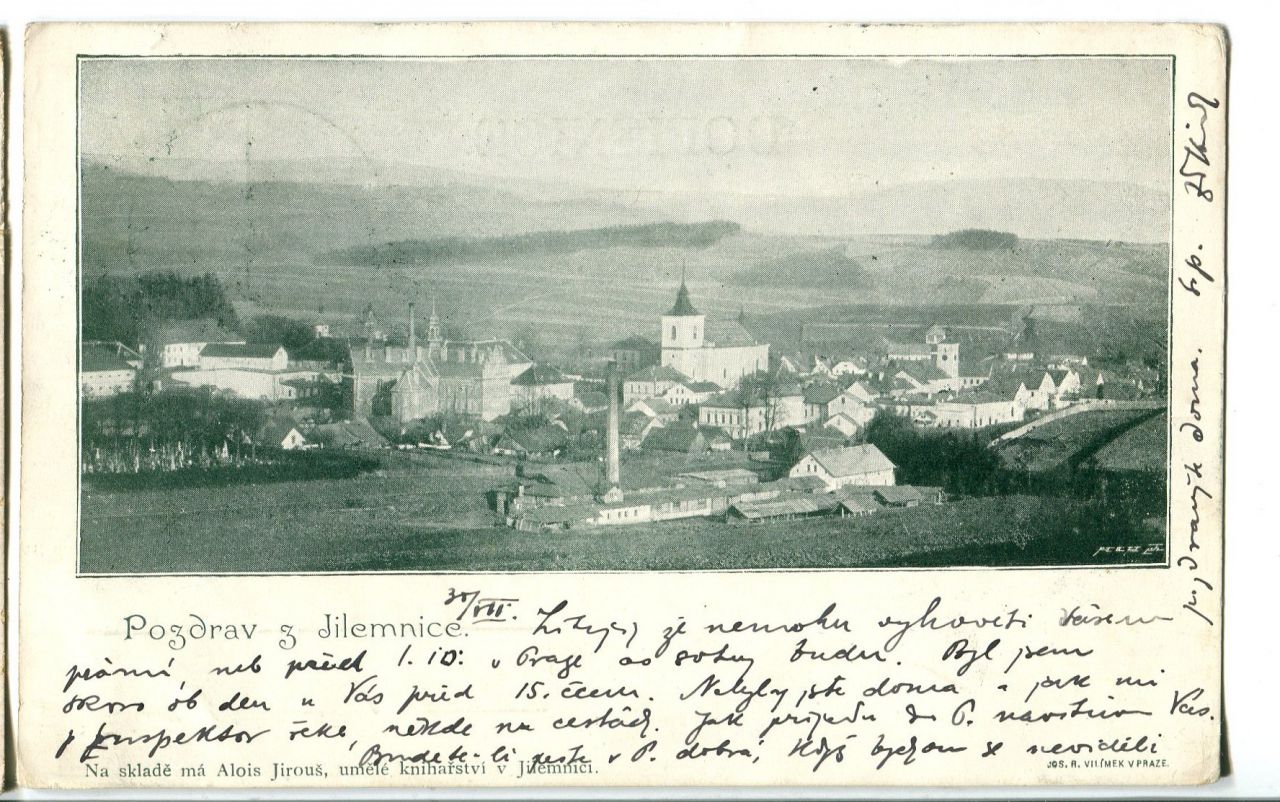 Pozdrav z Jilemnice.
30/VII. Lituji, že nemohu vyhověti Vašemu
přání, neb před 1. 10. v Praze as sotva budu. Byl jsem
skoro ob den u Vás před 15. čcem. Nebyly jste doma, a jak mi
p inspektor řekl, někde na cestách. Jak přijedu do P. navštívím Vás.
Budete-li ještě v P. dobrá, když bychom se neviděli
Na skladě má Alois Jirouš, umělé knihařství v Jilemnici.
JOS. R. VILÍMEK V PRAZE.
pozdravujte doma.